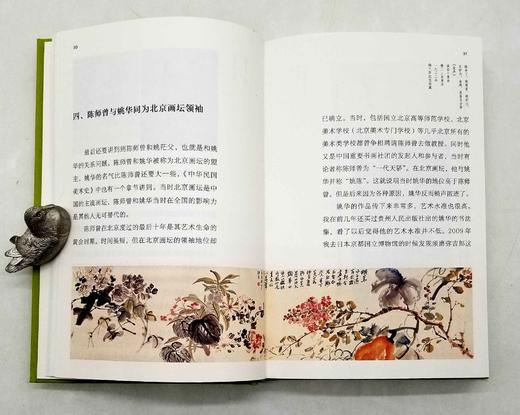 30
四、陈师曾与姚华同为北京画坛领袖
最后还要讲到陈师曾和姚茫父，也就是和姚
华的关系问题。陈师曾和姚华被称为北京画坛的盟
主，姚华的名气比陈师曾还要大一些，《中华民国
美术史》中也有一个章节讲到。当时北京画坛是中
国的主流画坛，陈师曾和姚华当时在全国的影响力
是其他人无可替代的。
陈师曾在北京度过的最后十年是其艺术生命的
黄金时期，时间虽短，但在北京画坛的领袖地位却
31
已确立。当时，包括国立北京高等师范学校、北京
美术学校（北京美术专门学校）等几乎北京所有的
美术类学校都曾争相聘请陈师曾去做教授。同时他
又是中国重要书画社团的发起人和参与者，当时有
论者称陈师曾为“一代天骄”。在北京画坛，他与姚
华并称“姚陈”。这就说明当时姚华的地位高于陈师
曾。但是后来因为各种原因，姚华反而稍声匿迹了。
姚华的作品传下来非常多，艺术水准也很高。我
在前几年还买过贵州人民出版社出的姚华的书法
集，看了以后觉得他的艺术水准并不低。2009 年
我去日本京都国立博物馆的时候发现须磨弥吉郎这